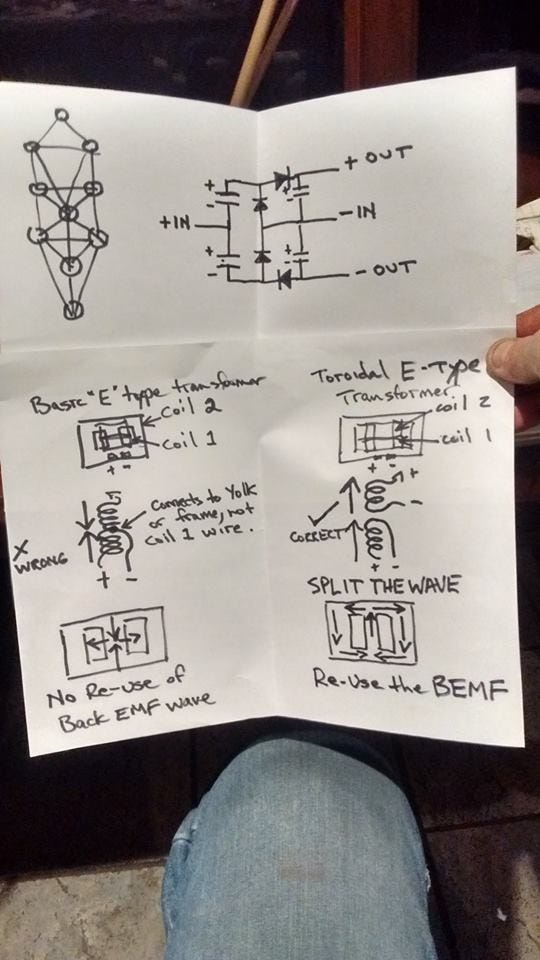 + OUT
+
-
+
-
+ IN
- IN
+
-
+
-
- OUT
Basic "E" type transformer
coil 2
coil 1
+ -
Connects to Yolk
or frame, not
coil 1 wire.
X
WRONG
+ -
No Re-use of
Back EMF wave
Toroidal E-Type
Transformer
coil 2
coil 1
+ -
+
-
CORRECT
+ -
SPLIT THE WAVE
Re-Use the BEMF